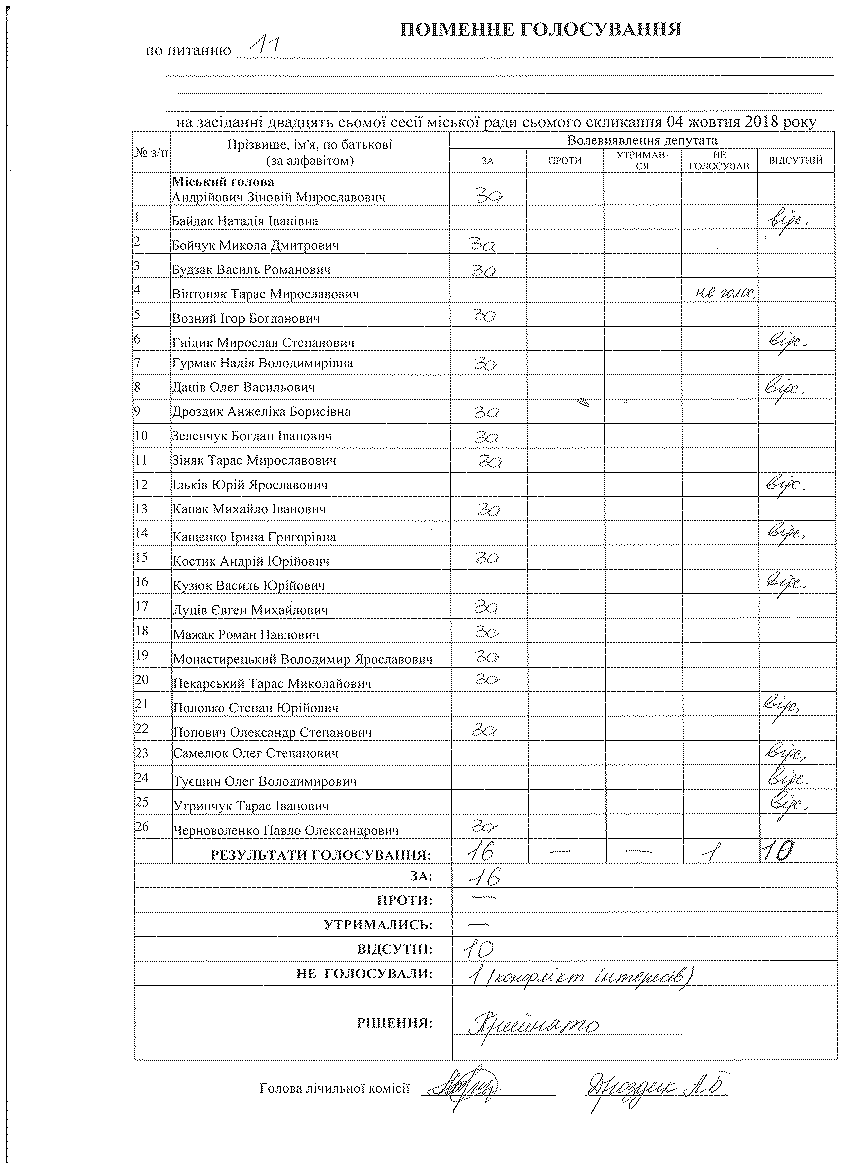 ПОІМЕННЕ ГОЛОСУВАННЯ
по питанню 11
на засіданні двадцять сьомої сесії міської ради сьомого скликання 04 жовтня 2018 року
№ з/п Прізвище, ім'я, по батькові (за алфавітом) Волевиявлення депутата
ЗА ПРОТИ УТРИМАВ-СЯ НЕ ГОЛОСУВАВ ВІДСУТНІЙ
Міський голова
Андрійович Зіновій Мирославович за
1 Байдак Наталія Іванівна відс.
2 Бойчук Микола Дмитрович за
3 Будзак Василь Романович за
4 Вінтоняк Тарас Мирославович не голос.
5 Возний Ігор Богданович за
6 Гнідик Мирослав Степанович відс.
7 Гурмак Надія Володимирівна за
8 Даців Олег Васильович відс.
9 Дроздик Анжеліка Борисівна за
10 Зеленчук Богдан Іванович за
11 Зіняк Тарас Мирославович за
12 Ільків Юрій Ярославович відс.
13 Капак Михайло Іванович за
14 Кащенко Ірина Григорівна відс.
15 Костик Андрій Юрійович за
16 Кузюк Василь Юрійович відс.
17 Луців Євген Михайлович за
18 Мажак Роман Павлович за
19 Монастирецький Володимир Ярославович за
20 Пекарський Тарас Миколайович за
21 Поповко Степан Юрійович відс.
22 Попович Олександр Степанович за
23 Самелюк Олег Степанович відс.
24 Туєшин Олег Володимирович відс.
25 Угринчук Тарас Іванович відс.
26 Черноволенко Павло Олександрович за
РЕЗУЛЬТАТИ ГОЛОСУВАННЯ: 16 — — 1 10
ЗА: 16
ПРОТИ: —
УТРИМАЛИСЬ: —
ВІДСУТНІ: 10
НЕ ГОЛОСУВАЛИ: 1 (конфлікт інтересів)
РІШЕННЯ: Прийнято
Голова лічильної комісії Дроздик А.Б